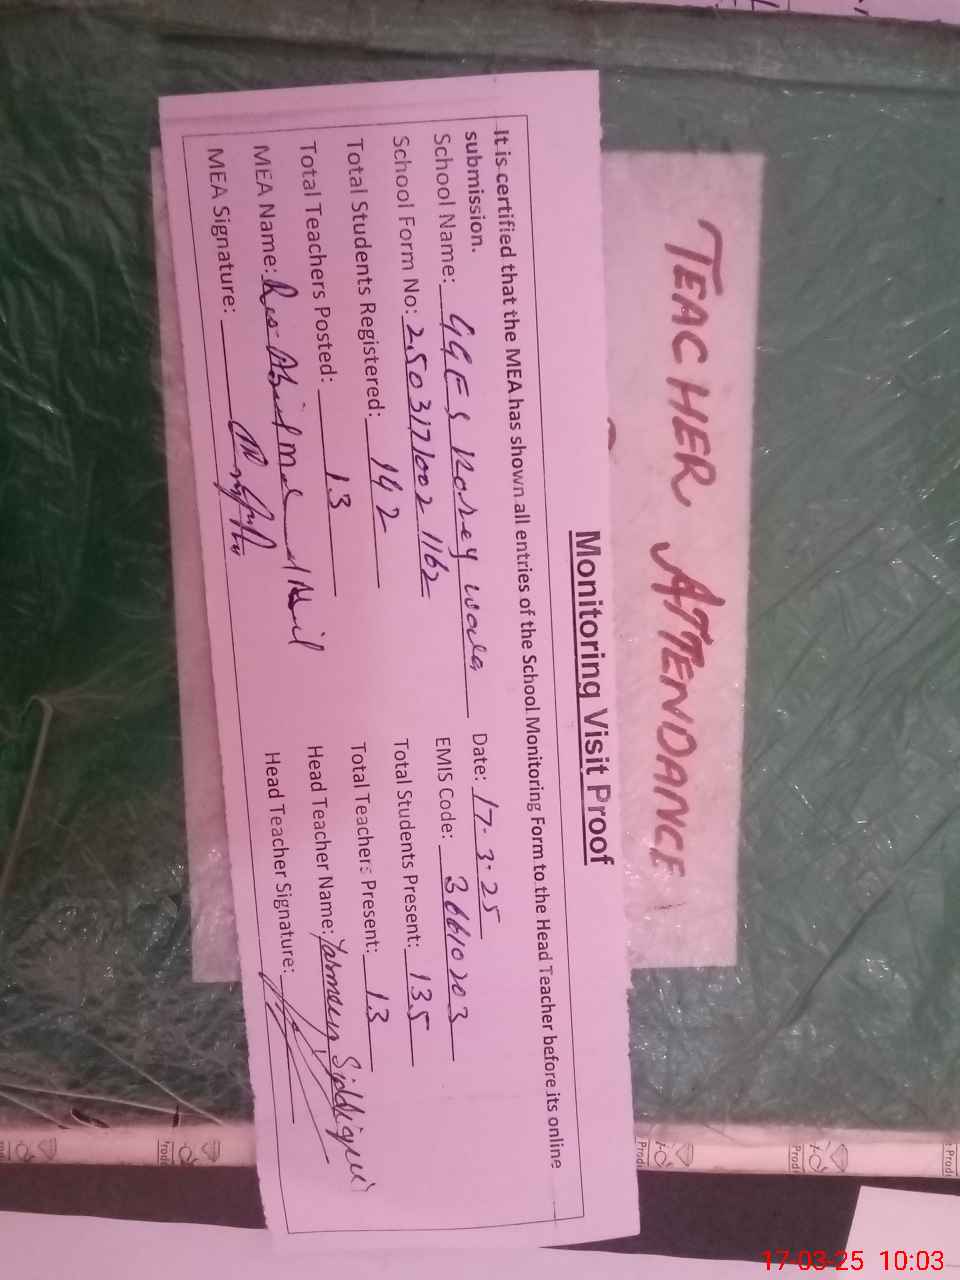 TEACHER ATTENDANCE
Monitoring Visit Proof
It is certified that the MEA has shown all entries of the School Monitoring Form to the Head Teacher before its online
submission.
School Name: GGES Korey wala Date: 17.3.25
School Form No: 2503171002 1162 EMIS Code: 36610203
Total Students Registered: 142 Total Students Present: 135
Total Teachers Posted: 13 Total Teachers Present: 13
MEA Name: Abid Head Teacher Name: Yasmeen Siddique
MEA Signature: Head Teacher Signature:
17-03-25 10:03